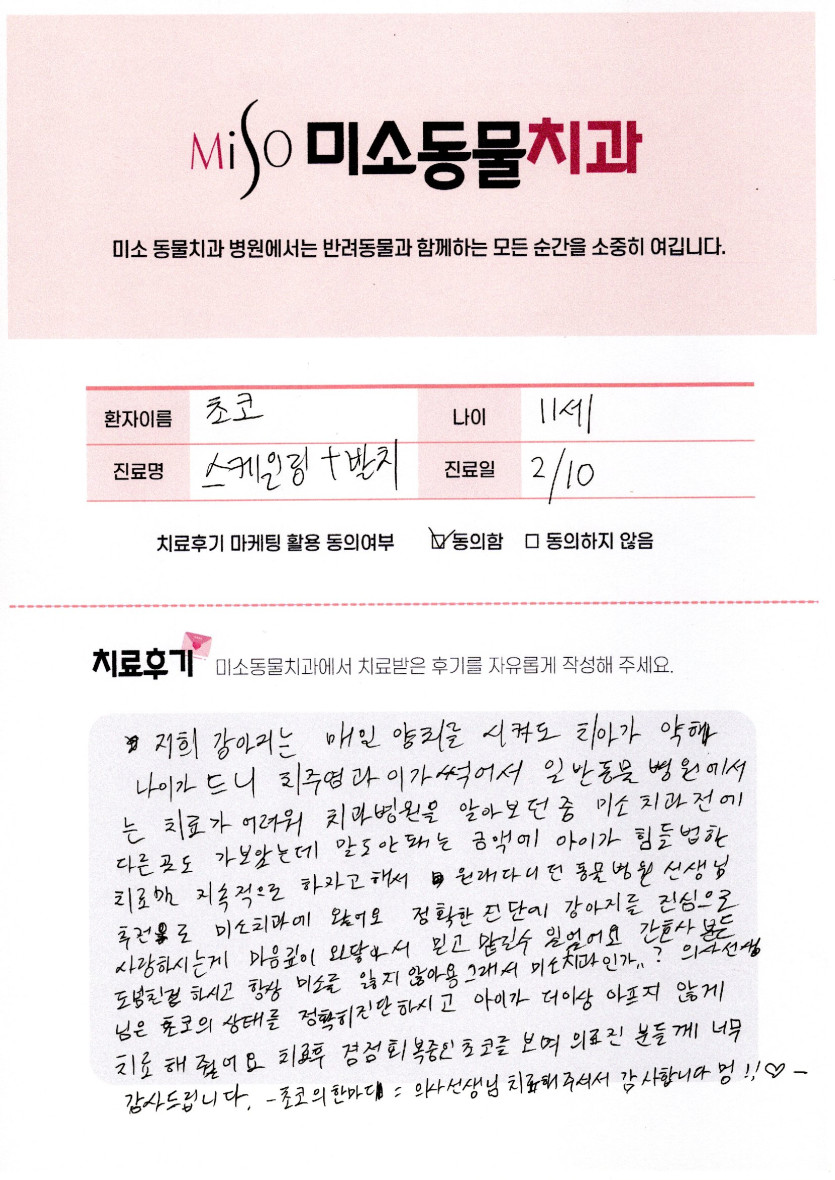 MiSO 미소동물치과
미소 동물치과 병원에서는 반려동물과 함께하는 모든 순간을 소중히 여깁니다.
환자이름 초코 나이 11세
진료명 스케일링 + 발치 진료일 2/10
치료후기 마케팅 활용 동의여부 ☑ 동의함 □ 동의하지 않음
치료후기 미소동물치과에서 치료받은 후기를 자유롭게 작성해 주세요.
저희 강아지는 매일 양치를 시켜도 치아가 약해
나이가 드니 치주염과 이가 썩어서 일반동물 병원에서
는 치료가 어려워 치과병원을 알아보던 중 미소 치과전에
다른곳도 가보았는데 말도안돼는 금액에 아이가 힘들법한
치료만 지속적으로 하자고 해서 원래다니던 동물병원 선생님
추천으로 미소치과에 왔어요 정확한 진단에 강아지를 진심으로
사랑하시는게 마음깊이 와닿아서 믿고 맡길수 있었어요 간호사 분들
도 넘친절 하시고 항상 미소를 잃지 않아용 그래서 미소치과인가..? 의사선생
님은 초코의 상태를 정확히진단하시고 아이가 더이상 아프지 않게
치료 해 줬어요 치료후 점점회복중인 초코를 보며 의료진 분들께 너무
감사드립니다. - 초코의한마디 = 의사선생님 치료해주셔서 감사합니다 멍!! ♡ -